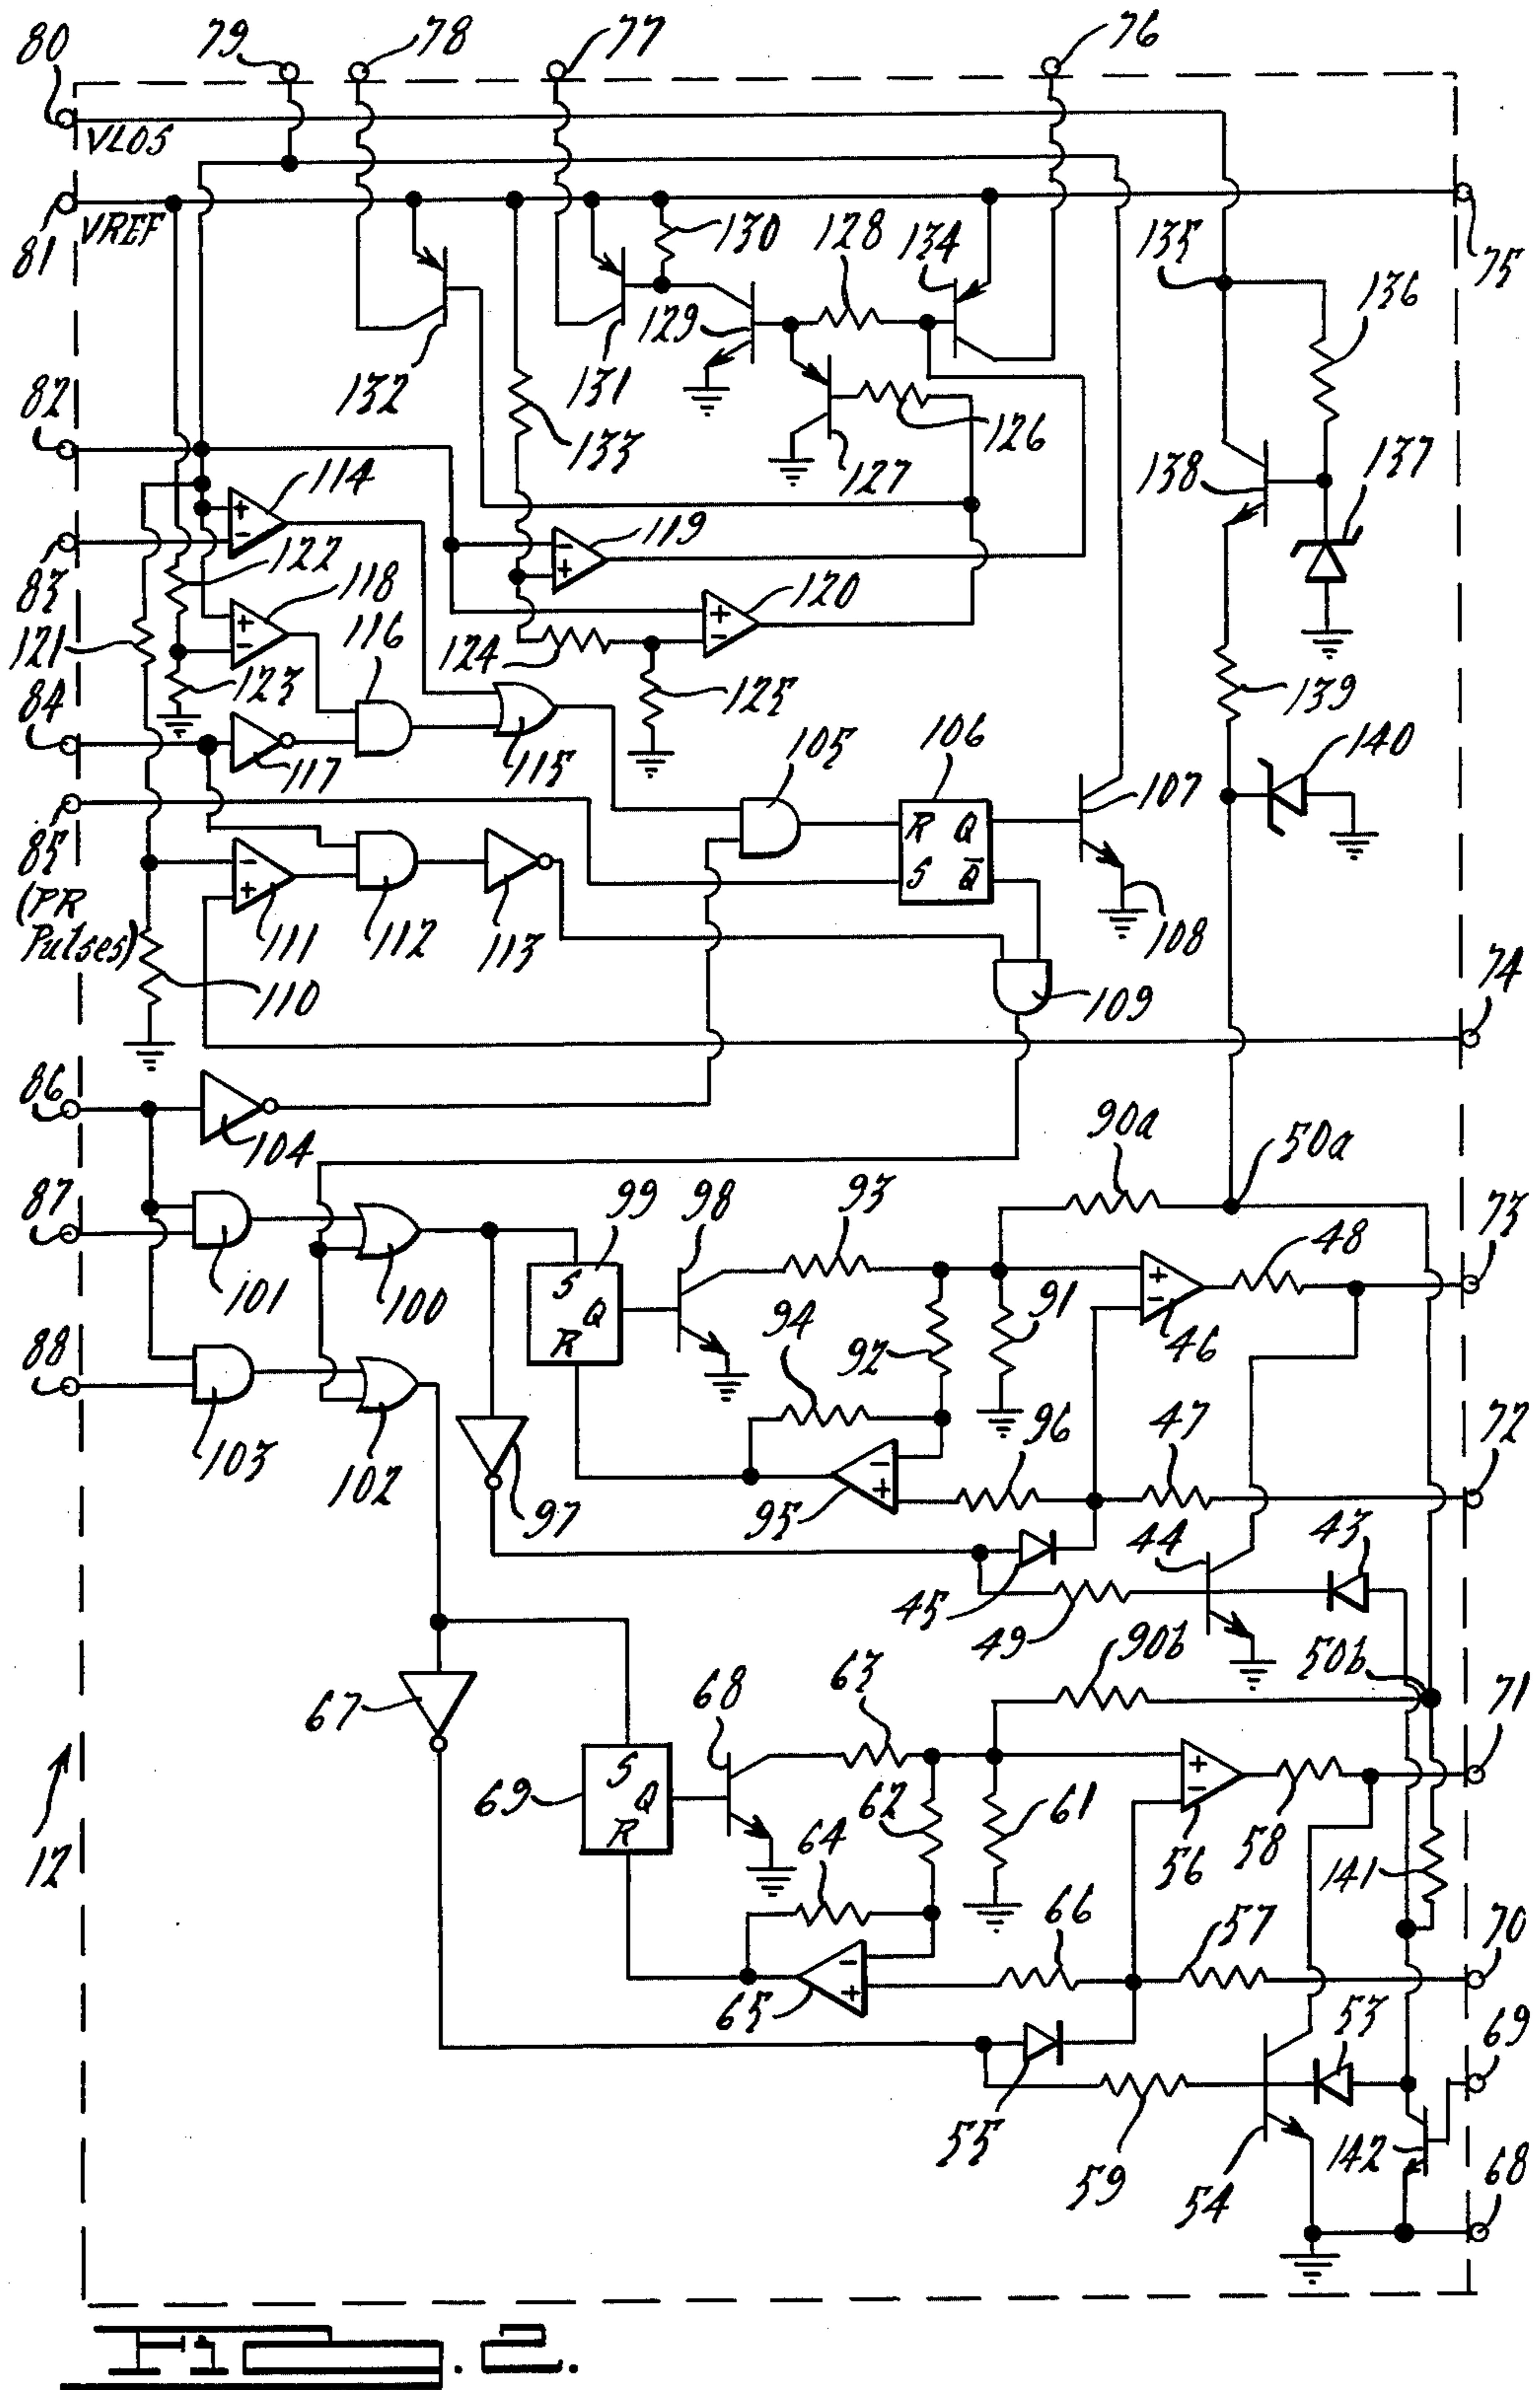 80
79
78
77
76
VLOS
81
VREF
130
128
134
135
75
136
132
131
129
133
127
126
82
114
138
137
83
122
119
118
120
121
116
124
139
123
125
84
117
115
105
106
140
107
R Q
S Q̅
85
(PR
Pulses)
111
112
113
108
110
109
74
86
104
90a
50a
87
99
98
93
48
73
101
100
S
Q
R
94
92
91
46
88
103
102
96
47
72
97
95
44
43
45
49
90b
50b
67
68
63
71
S
Q
R
69
62
61
56
58
141
12
64
66
57
70
65
53
69
55
59
54
142
68
FIG. 2.